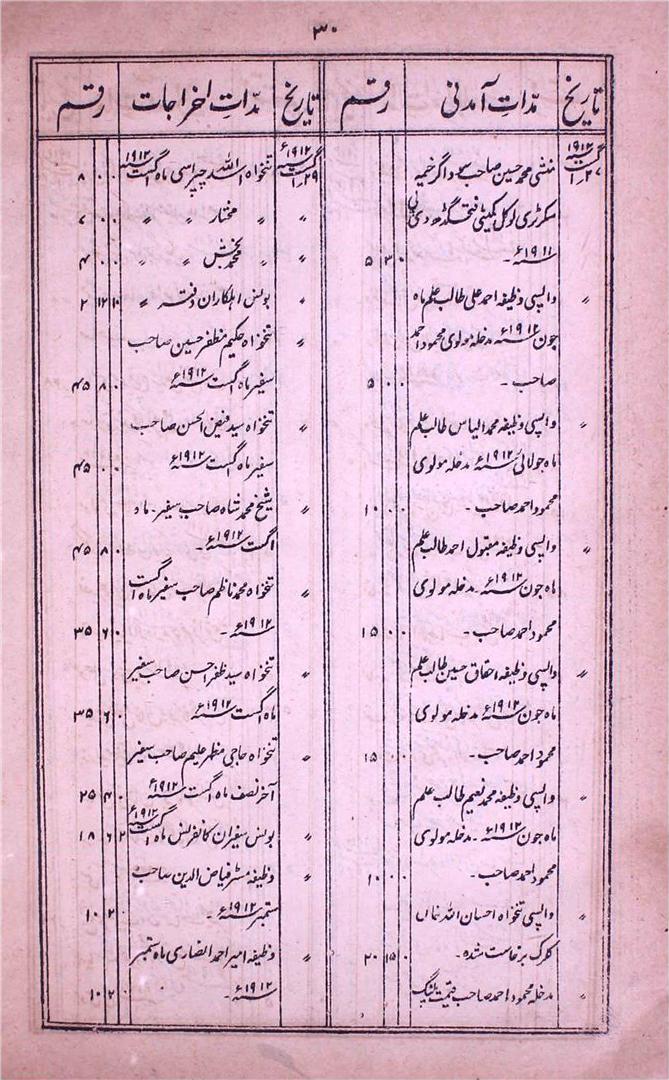 ۳۰
تاریخ مدّات آمدنی رقم
۲۷ اگست ۱۹۱۲ء منشی محمد حسین صاحب سوداگر خیمہ
سکرٹری لوکل کمیٹی فتحگڈھ
۱۹۱۱ء - ۵ ۳ ۰
〃 واپسی وظیفہ احمد علی طالب علم ماہ
جون ۱۹۱۲ء مدخلہ مولوی محمود احمد
صاحب - ۵ ۰ ۰
〃 واپسی وظیفہ محمد الیاس طالب علم
ماہ جولائی ۱۹۱۲ء مدخلہ مولوی
محمود احمد صاحب - ۱۰ ۰ ۰
〃 واپسی وظیفہ مقبول احمد طالب علم
ماہ جون ۱۹۱۲ء - مدخلہ مولوی
محمود احمد صاحب - ۱۵ ۰ ۰
〃 واپسی وظیفہ احقاق حسین طالب علم
ماہ جون ۱۹۱۲ء مدخلہ مولوی
محمود احمد صاحب - ۱۵ ۰ ۰
〃 واپسی وظیفہ محمد نعیم طالب علم
ماہ جون ۱۹۱۲ء - مدخلہ مولوی
محمود احمد صاحب - ۱۰ ۰ ۰
〃 واپسی تنخواہ احسان اللہ خاں
کلرک برخاست شدہ - ۲۰ ۱۵ ۰
〃 مدخلہ محمود احمد صاحب قیمت پلنگ
تاریخ مدّات اخراجات رقم
۲۹ اگست ۱۹۱۲ء تنخواہ اللہ چپراسی ماہ اگست ۱۹۱۲ء ۸ ۰ ۰
〃 〃 مختار 〃 〃 ۷ ۰ ۰
〃 〃 محمد بخش 〃 〃 ۴ ۰ ۰
〃 بونس اہلکاران دفتر 〃 ۲ ۱۲ ۱۰
〃 تنخواہ حکیم مظفر حسین صاحب
سفیر ماہ اگست ۱۹۱۲ء ۴۵ ۸ ۰
〃 تنخواہ سید فیض الحسن صاحب
سفیر ماہ اگست ۱۹۱۲ء ۴۵ ۰ ۰
〃 شیخ محمد شاہ صاحب سفیر - ماہ
اگست ۱۹۱۲ء - ۴۵ ۸ ۰
〃 تنخواہ محمد ناظم صاحب سفیر ماہ اگست
۱۹۱۲ء - ۳۵ ۶ ۰
〃 تنخواہ سید ظفر احسن صاحب سفیر
ماہ اگست ۱۹۱۲ء ۳۵ ۶ ۰
〃 تنخواہ حاجی مظہر علیم صاحب سفیر
آخر نصف ماہ اگست ۱۹۱۲ء ۲۵ ۴ ۰
〃 بونس سفیران کانفرنس ماہ اگست ۱۹۱۲ء ۱۸ ۶ ۲
〃 وظیفہ مسٹر فیاض الدین صاحب
ستمبر ۱۹۱۲ء - ۱۰ ۲ ۰
〃 وظیفہ امیر احمد انصاری ماہ ستمبر
۱۹۱۲ء - ۱۰ ۲ ۰